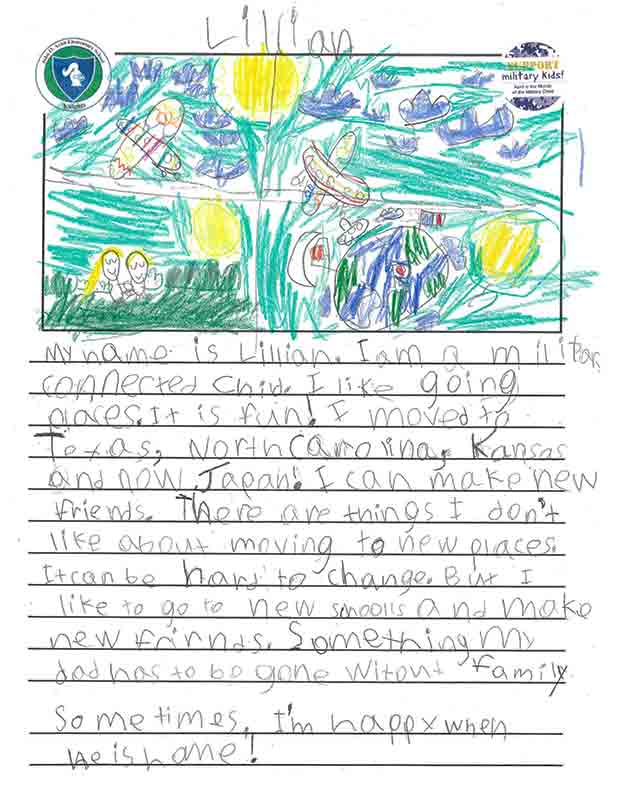 Lillian
John O. Arnn Elementary School
Knights
SUPPORT
military Kids!
April is the Month
of the Military Child
My name is Lillian. I am a militar
connected Chid. I like going
places. It is fun! I moved to
Texas, North Carolina, Kansas
and now Japan! I can make new
friends. There are things I don't
like about moving to new places.
It can be hard to change. But I
like to go to new schoolls and make
new frirnds. Something my
dad has to be gone witout family
Sometimes, I'm happy when
he is home!